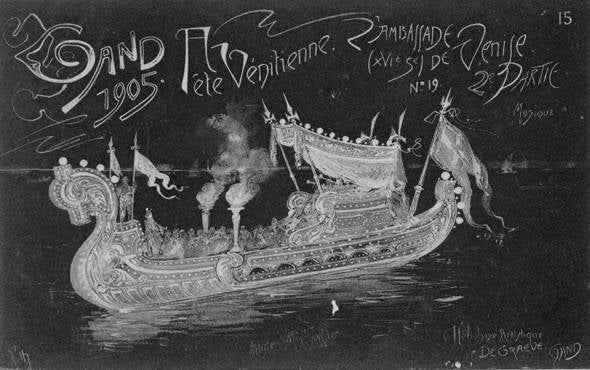 15
GAND
1905.
Fête Vénitienne.
L'AMBASSADE
(XVIe Se) DE Venise
No 19 2e PARTIE
Musique
Artistique
DE GRAEVE. GAND